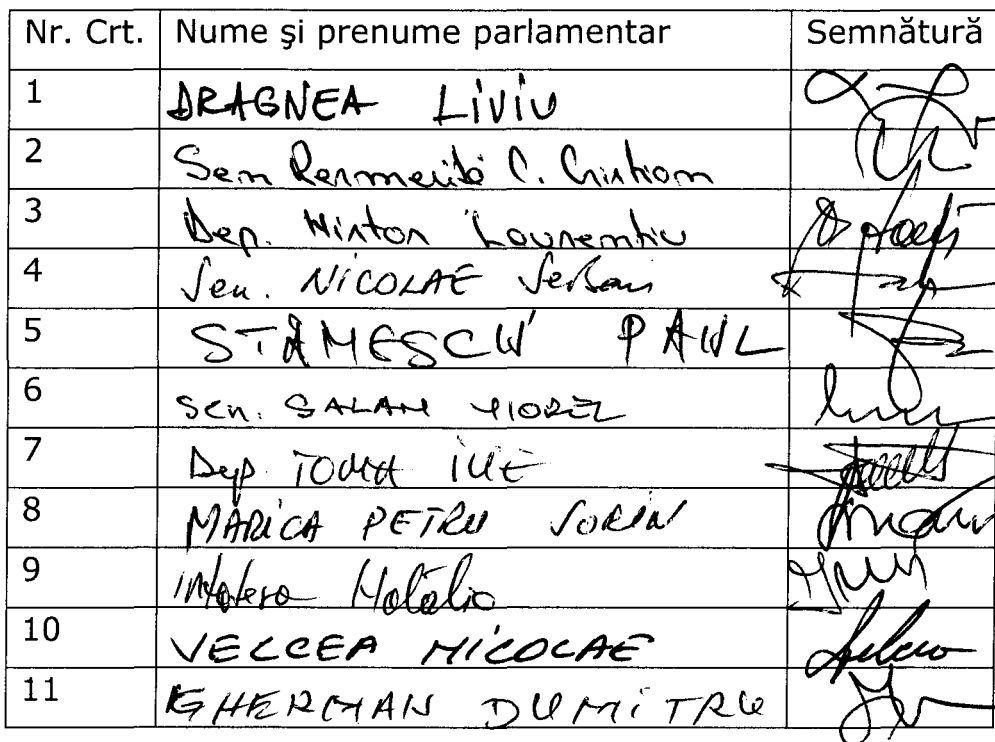 Nr. Crt. Nume şi prenume parlamentar Semnătură
1 DRAGNEA LIVIU
2 Sen C. Cristian
3 Dep. Nistor Laurențiu
4 Sen. NICOLAE Șerban
5 STĂNESCU PAUL
6 Sen. SALAN VIOREL
7 Dep TOMA ILIE
8 MARICA PETRU SORIN
9 Intotero Natalia
10 VELCEA NICOLAE
11 GHERMAN DUMITRU